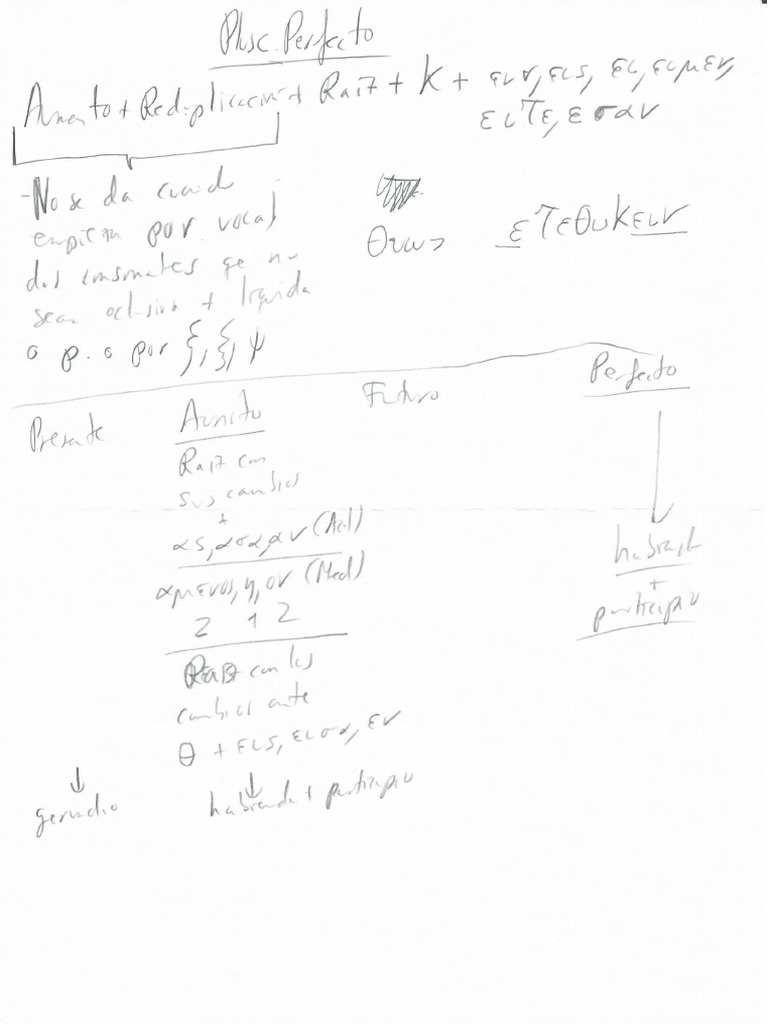 Plusc. Perfecto
Aumento + Reduplicación + Raíz + K + ειν, εις, ει, ειμεν,
ειτε, εσαν
- No se da cuand
empieza por vocal
dos consonantes qe no
sean oclusiva + líquida
o ρ. o por ζ, ξ, ψ
θυω > ετεθυκειν
Presente Aoristo Futuro Perfecto
Raíz con
sus cambios
+
ας, ασα, αν (Act)
αμενος, η, ον (Med)
2 1 2
Raíz con los
cambios ante
θ + εις, εισα, εν
↓
gerundio
↓
habiendo + participio
habiend
+
participio